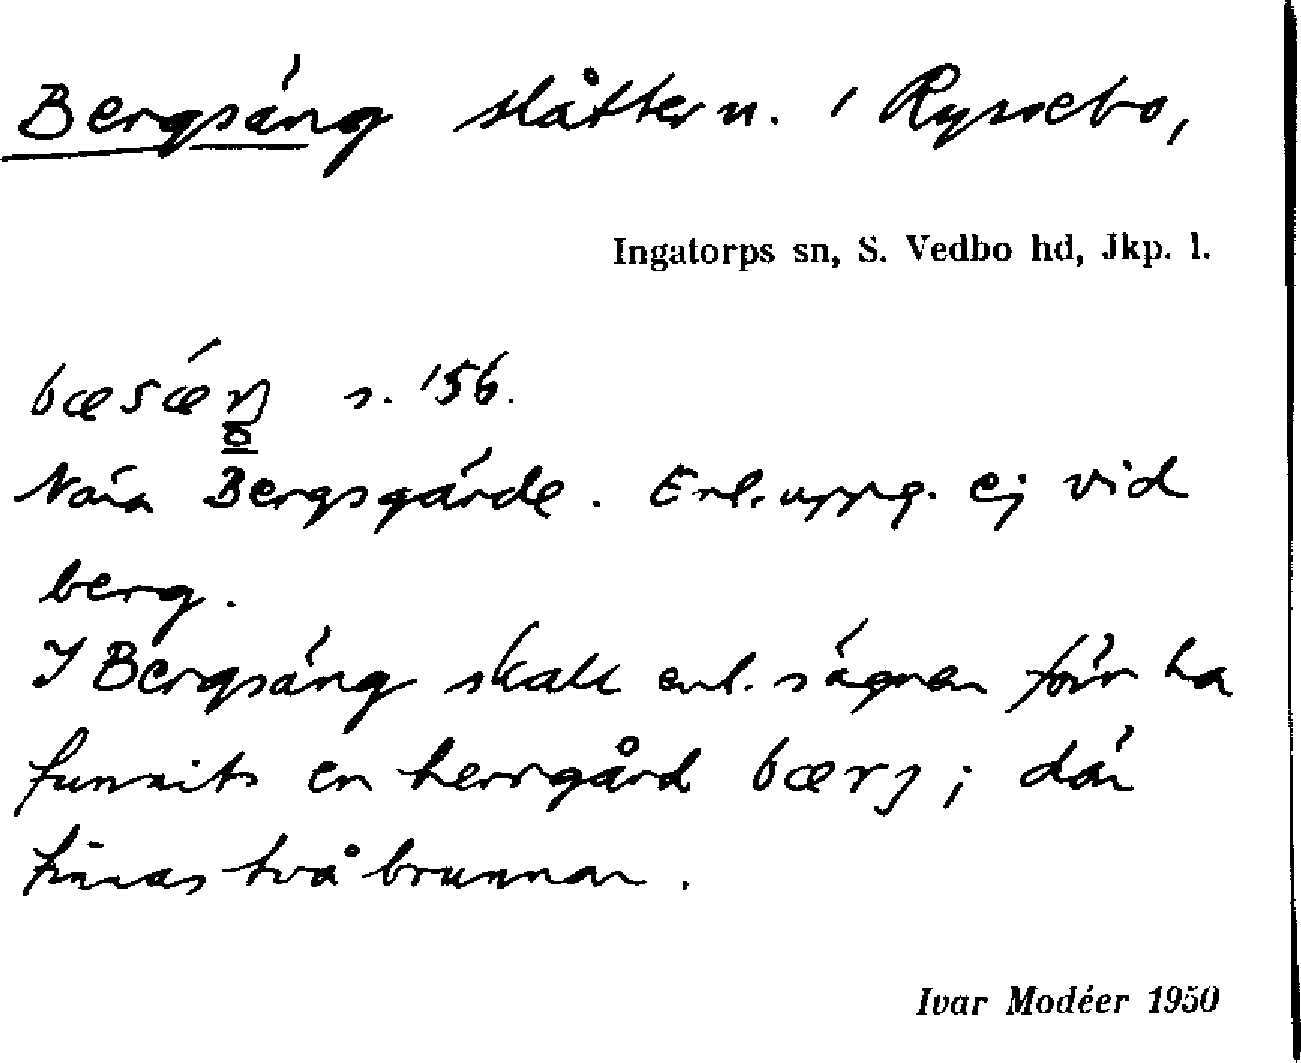 Bergsäng slåttern. i Ryssebo,
Ingatorps sn, S. Vedbo hd, Jkp. l.
bæsæŋ s. 156.
Nära Bergsgärde. Enl. uppg. ej vid
berg.
I Bergsäng skall enl. sägnen förr ha
funnits en herrgård bærj; där
finnas två brunnar.
Ivar Modéer 1950